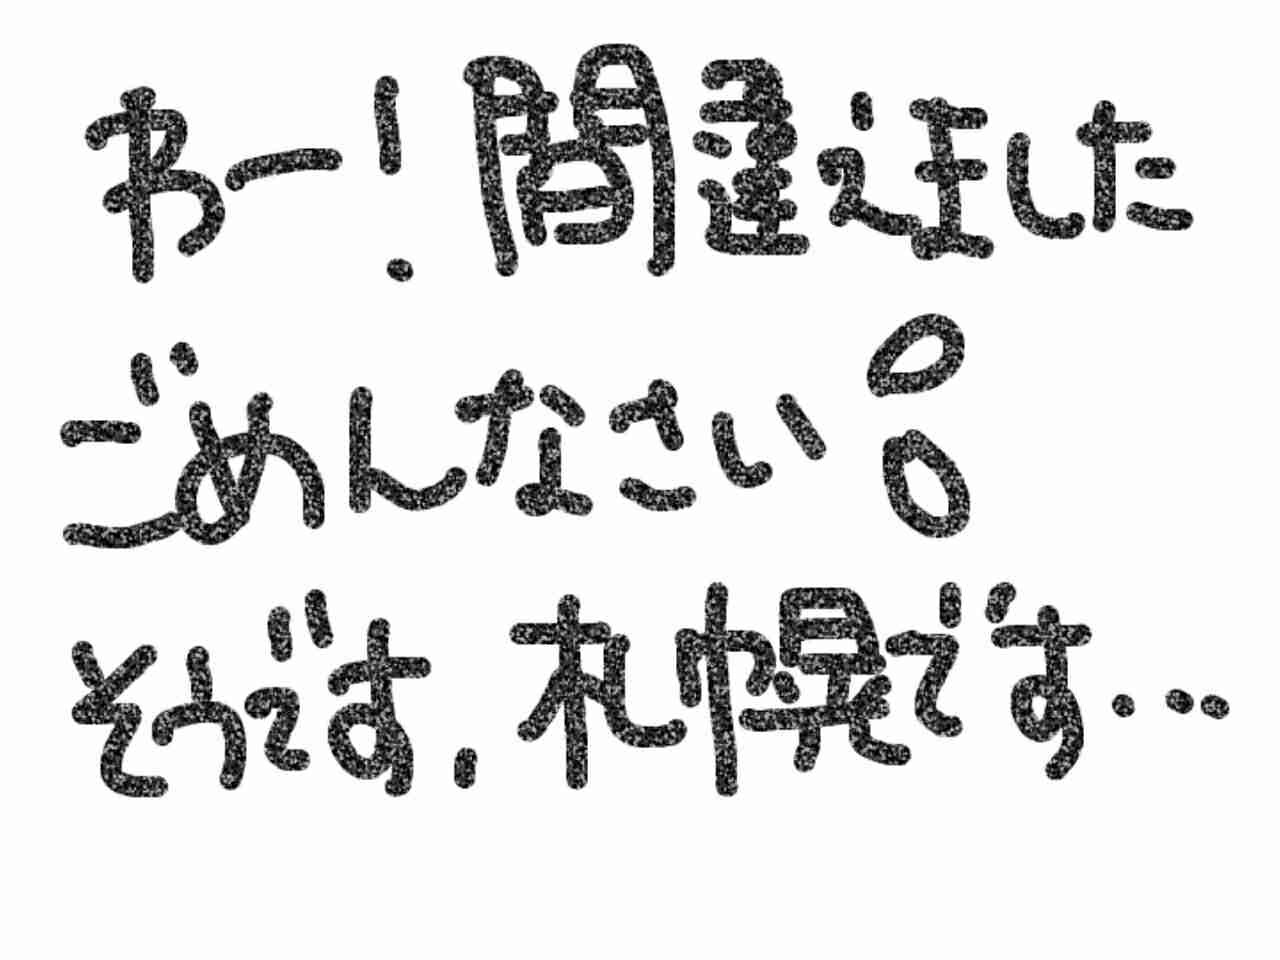 わー!間違えました
ごめんなさい。。
そうです、札幌です...